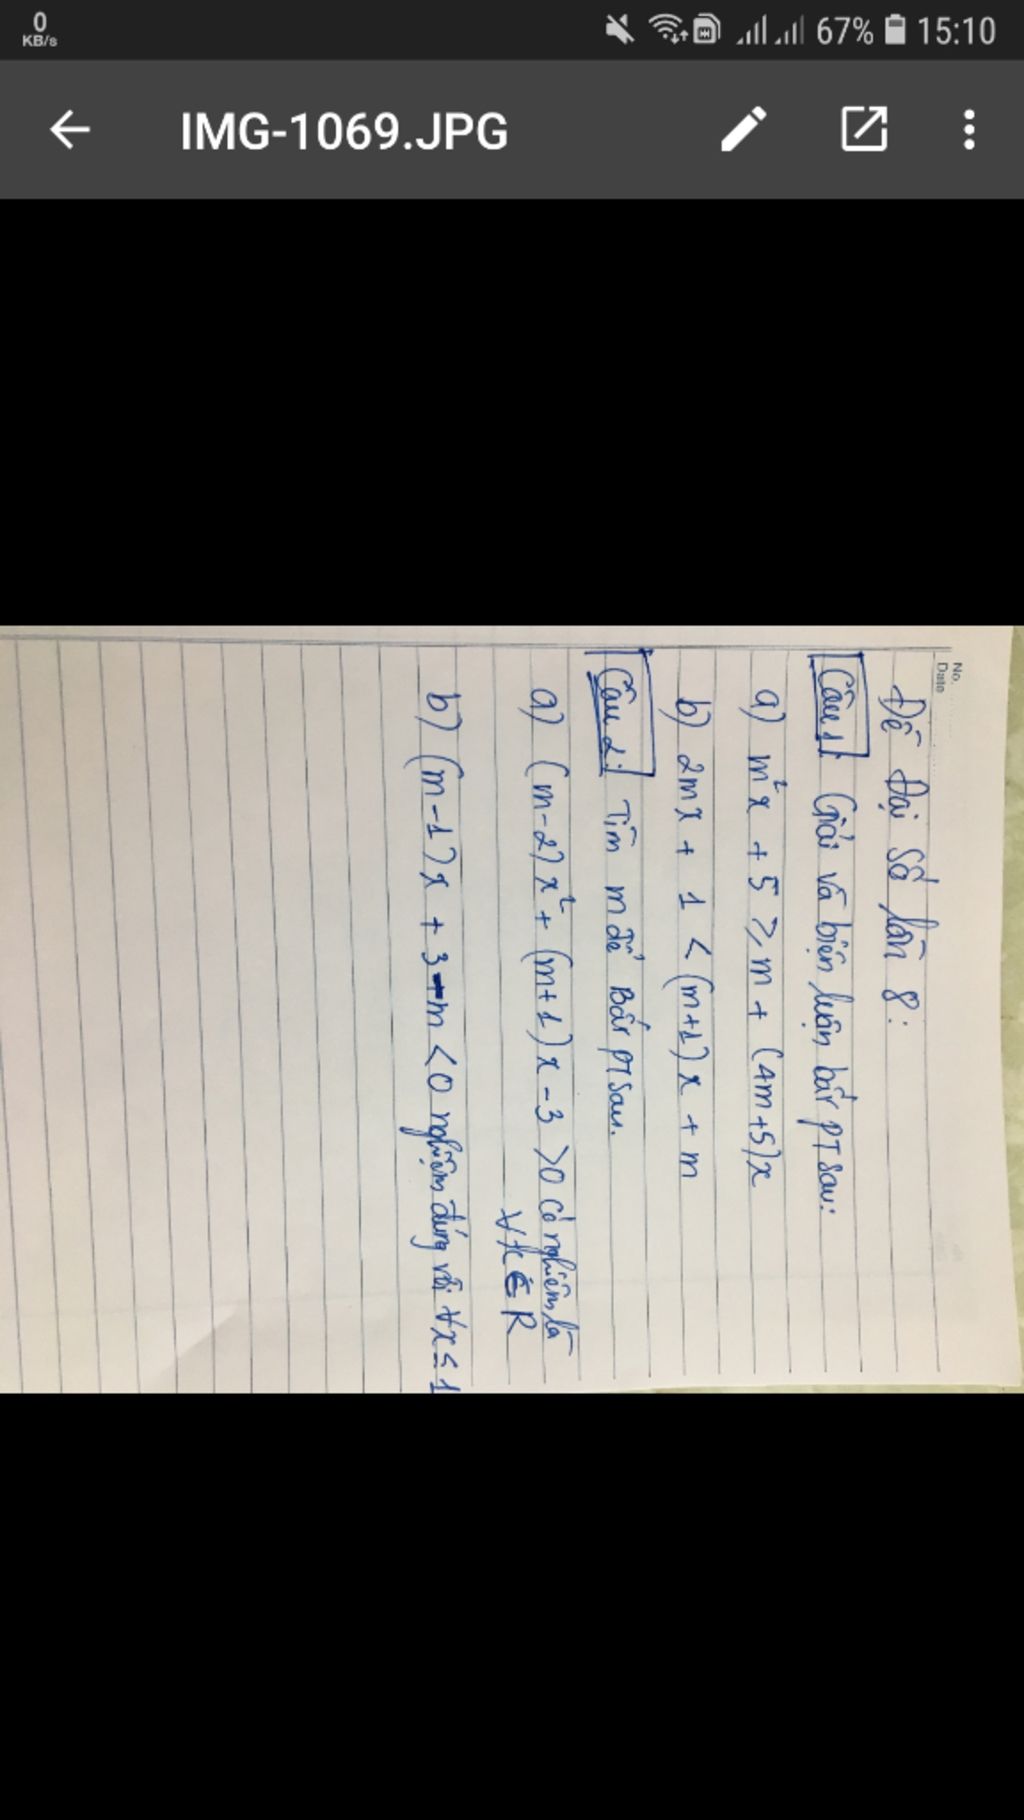 0
KB/s
67%
15:10
IMG-1069.JPG
No.
Date
Đề Đại Số lần 8:
Câu 1: Giải và biện luận bất PT sau:
a) m²x + 5 ≥ m + (4m+5)x
b) 2mx + 1 < (m+1)x + m
Câu 2: Tìm m để Bất PT sau.
a) (m-2)x² + (m+1)x - 3 >0 có nghiệm là
∀x∈R
b) (m-1)x + 3-m <0 nghiệm đúng với ∀x≤1